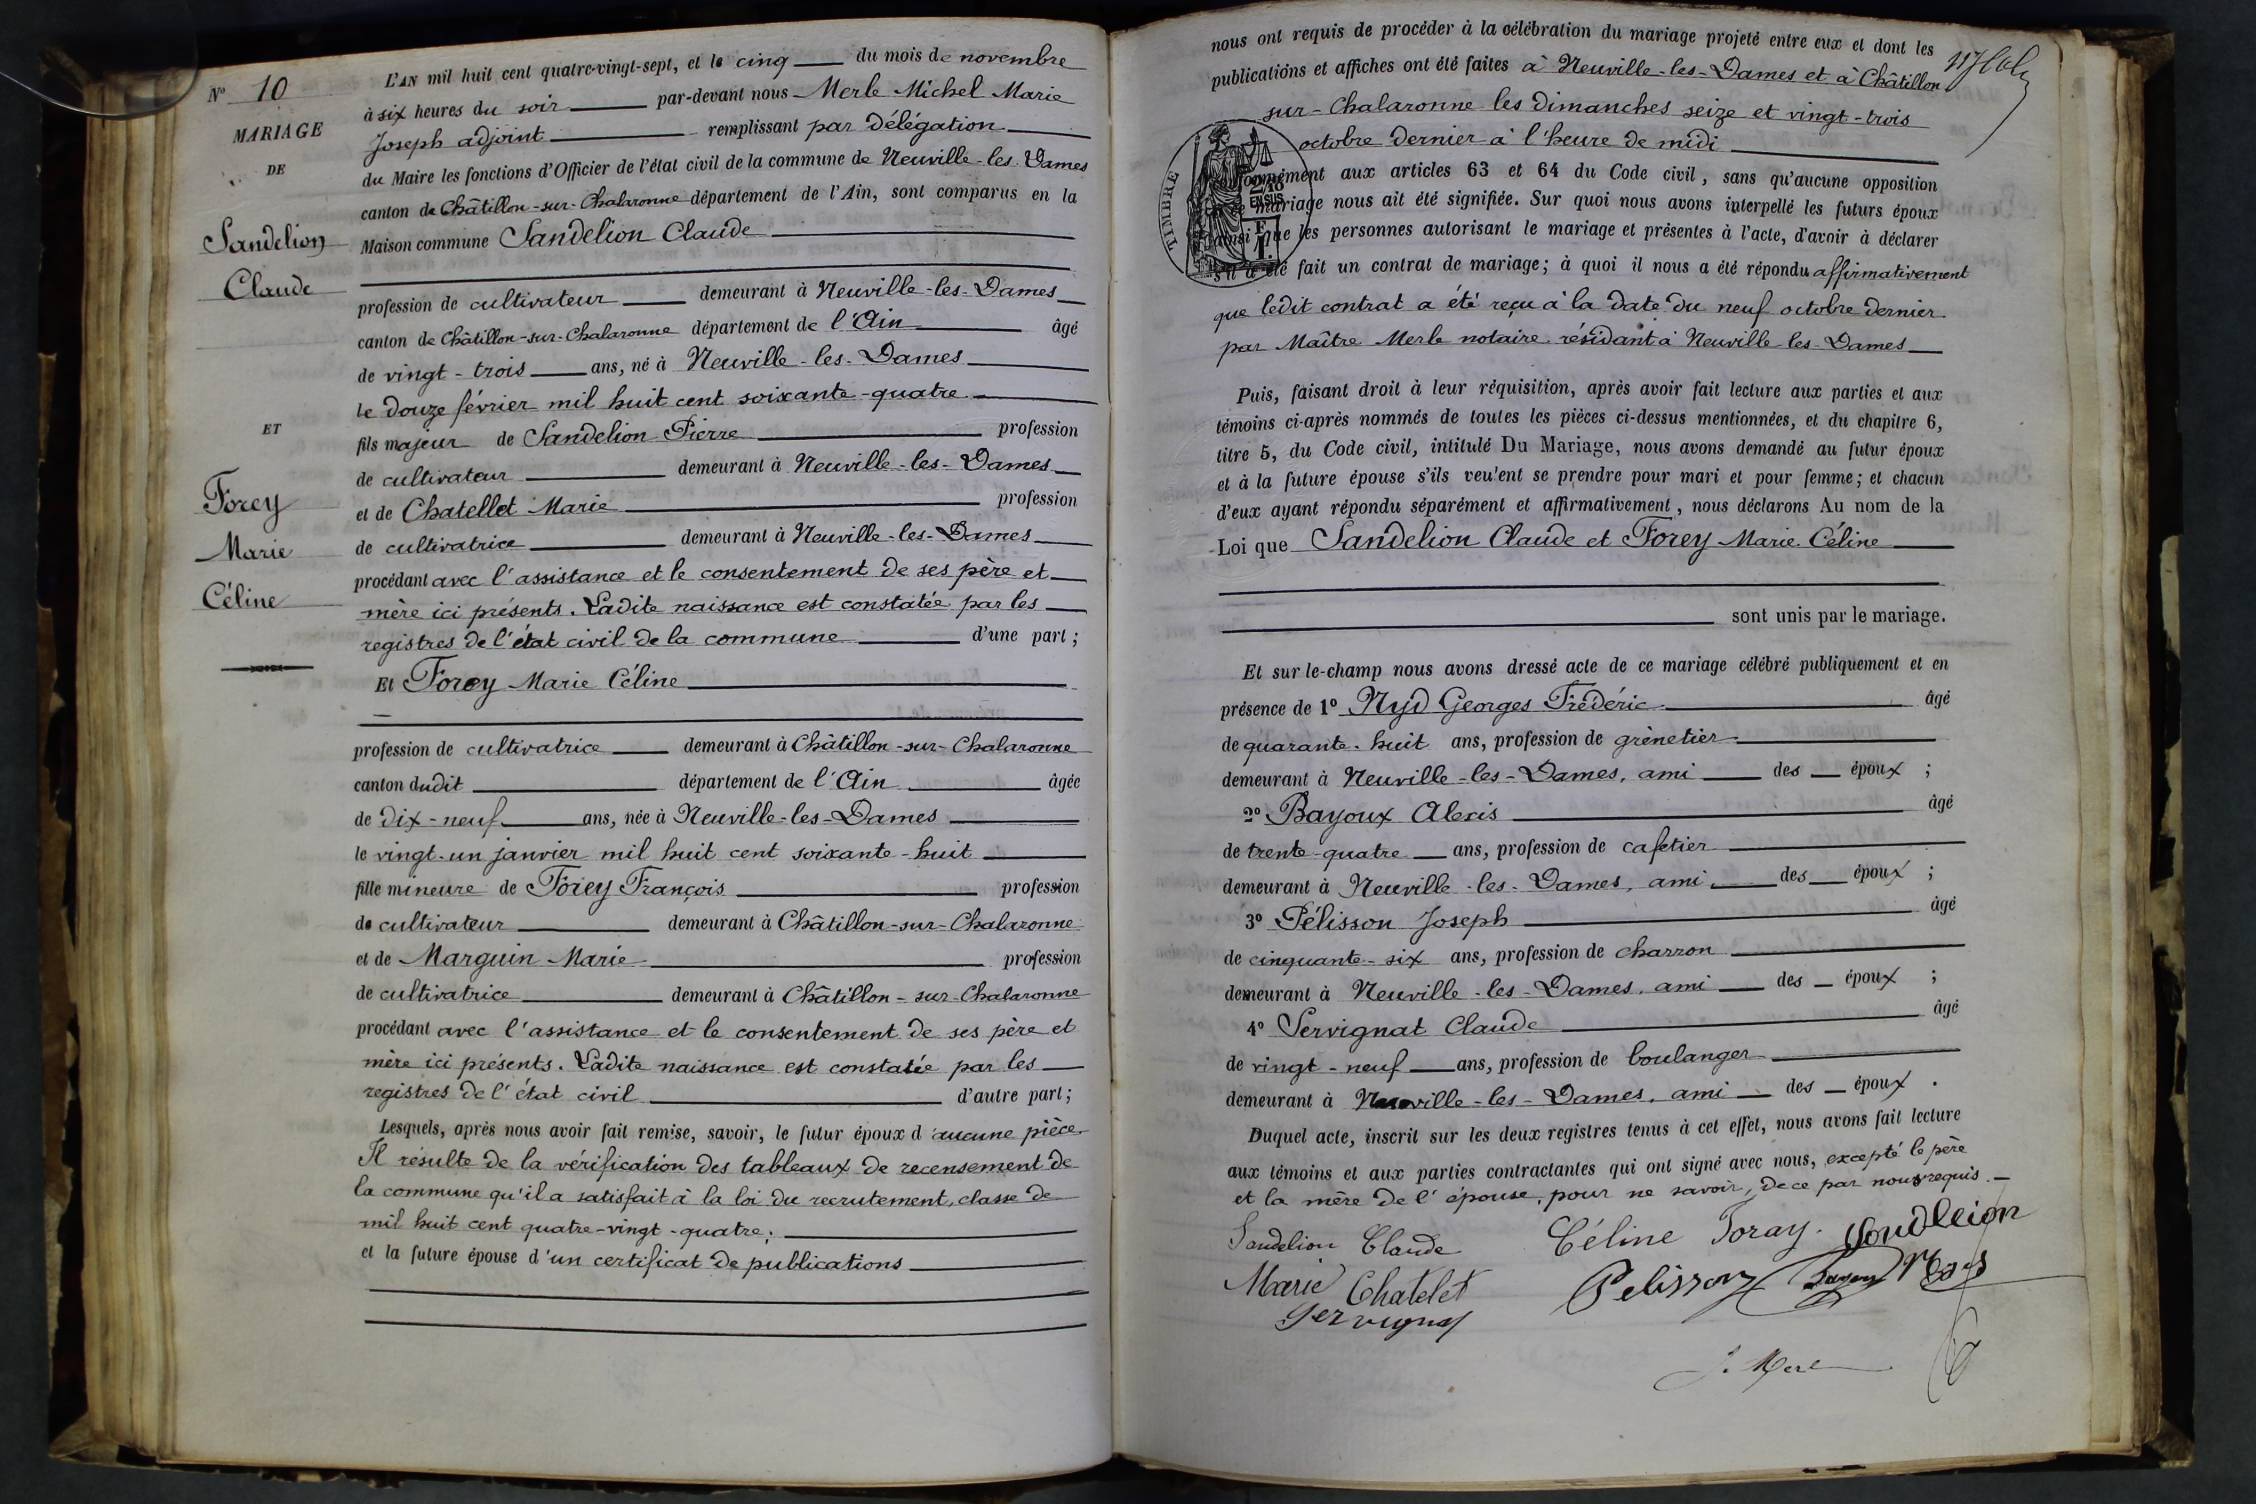 N° 10
MARIAGE
DE
Sandelion
Claude
ET
Forey
Marie
Céline
L'AN mil huit cent quatre-vingt-sept, et le cinq du mois de novembre
à six heures du soir par-devant nous Merle Michel Marie
Joseph adjoint remplissant par délégation
du Maire les fonctions d'Officier de l'état civil de la commune de Neuville-les-Dames
canton de Châtillon-sur-Chalaronne département de l'Ain, sont comparus en la
Maison commune Sandelion Claude
profession de cultivateur demeurant à Neuville-les-Dames
canton de Châtillon-sur-Chalaronne département de l'Ain âgé
de vingt-trois ans, né à Neuville-les-Dames
le douze février mil huit cent soixante-quatre
fils majeur de Sandelion Pierre profession
de cultivateur demeurant à Neuville-les-Dames
et de Chatellet Marie profession
de cultivatrice demeurant à Neuville-les-Dames
procédant avec l'assistance et le consentement de ses père et
mère ici présents. Ladite naissance est constatée par les
registres de l'état civil de la commune d'une part ;
Et Forey Marie Céline
profession de cultivatrice demeurant à Châtillon-sur-Chalaronne
canton dudit département de l'Ain âgée
de dix-neuf ans, née à Neuville-les-Dames
le vingt-un janvier mil huit cent soixante-huit
fille mineure de Forey François profession
de cultivateur demeurant à Châtillon-sur-Chalaronne
et de Marguin Marie profession
de cultivatrice demeurant à Châtillon-sur-Chalaronne
procédant avec l'assistance et le consentement de ses père et
mère ici présents. Ladite naissance est constatée par les
registres de l'état civil d'autre part ;
Lesquels, après nous avoir fait remise, savoir, le futur époux d'aucune pièce
Il résulte de la vérification des tableaux de recensement de
la commune qu'il a satisfait à la loi du recrutement, classe de
mil huit cent quatre-vingt-quatre ;
et la future épouse d'un certificat de publications
nous ont requis de procéder à la célébration du mariage projeté entre eux et dont les
publications et affiches ont été faites à Neuville-les-Dames et à Châtillon
sur-Chalaronne les dimanches seize et vingt-trois
octobre dernier à l'heure de midi
TIMBRE
conformément aux articles 63 et 64 du Code civil, sans qu'aucune opposition
à ce mariage nous ait été signifiée. Sur quoi nous avons interpellé les futurs époux
ainsi que les personnes autorisant le mariage et présentes à l'acte, d'avoir à déclarer
s'il a été fait un contrat de mariage ; à quoi il nous a été répondu affirmativement
que ledit contrat a été reçu à la date du neuf octobre dernier
par Maître Merle notaire résidant à Neuville-les-Dames
Puis, faisant droit à leur réquisition, après avoir fait lecture aux parties et aux
témoins ci-après nommés de toutes les pièces ci-dessus mentionnées, et du chapitre 6,
titre 5, du Code civil, intitulé Du Mariage, nous avons demandé au futur époux
et à la future épouse s'ils veulent se prendre pour mari et pour femme ; et chacun
d'eux ayant répondu séparément et affirmativement, nous déclarons Au nom de la
Loi que Sandelion Claude et Forey Marie Céline
sont unis par le mariage.
Et sur le-champ nous avons dressé acte de ce mariage célébré publiquement et en
présence de 1° Nyd Georges Frédéric âgé
de quarante-huit ans, profession de grènetier
demeurant à Neuville-les-Dames, ami des époux ;
2° Bayoux Alexis âgé
de trente-quatre ans, profession de cafetier
demeurant à Neuville-les-Dames, ami des époux ;
3° Pélisson Joseph âgé
de cinquante-six ans, profession de charron
demeurant à Neuville-les-Dames, ami des époux ;
4° Servignat Claude âgé
de vingt-neuf ans, profession de boulanger
demeurant à Neuville-les-Dames, ami des époux .
Duquel acte, inscrit sur les deux registres tenus à cet effet, nous avons fait lecture
aux témoins et aux parties contractantes qui ont signé avec nous, excepté le père
et la mère de l'épouse, pour ne savoir, de ce par nous requis.
Sandelion Claude Céline Foray. Sandleion
Marie Chatelet Pelisson
Servignat
J. Merle